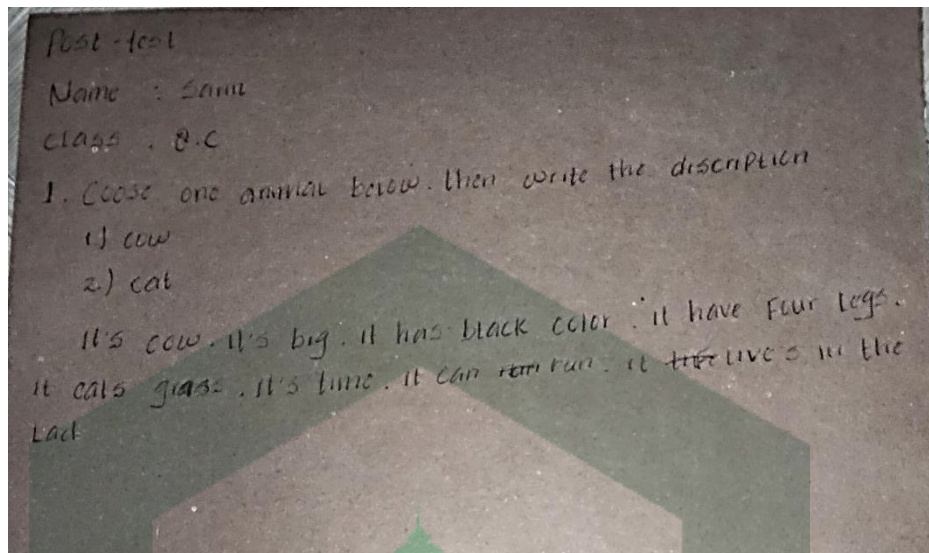 Post-test
Name : Sami
class : 8.C
1. Coose one animal below. then write the discription
1) cow
2.) cat
It's cow. it's big. it has black color. it have Four legs.
it eats grass. it's time. it can run. it lives in the